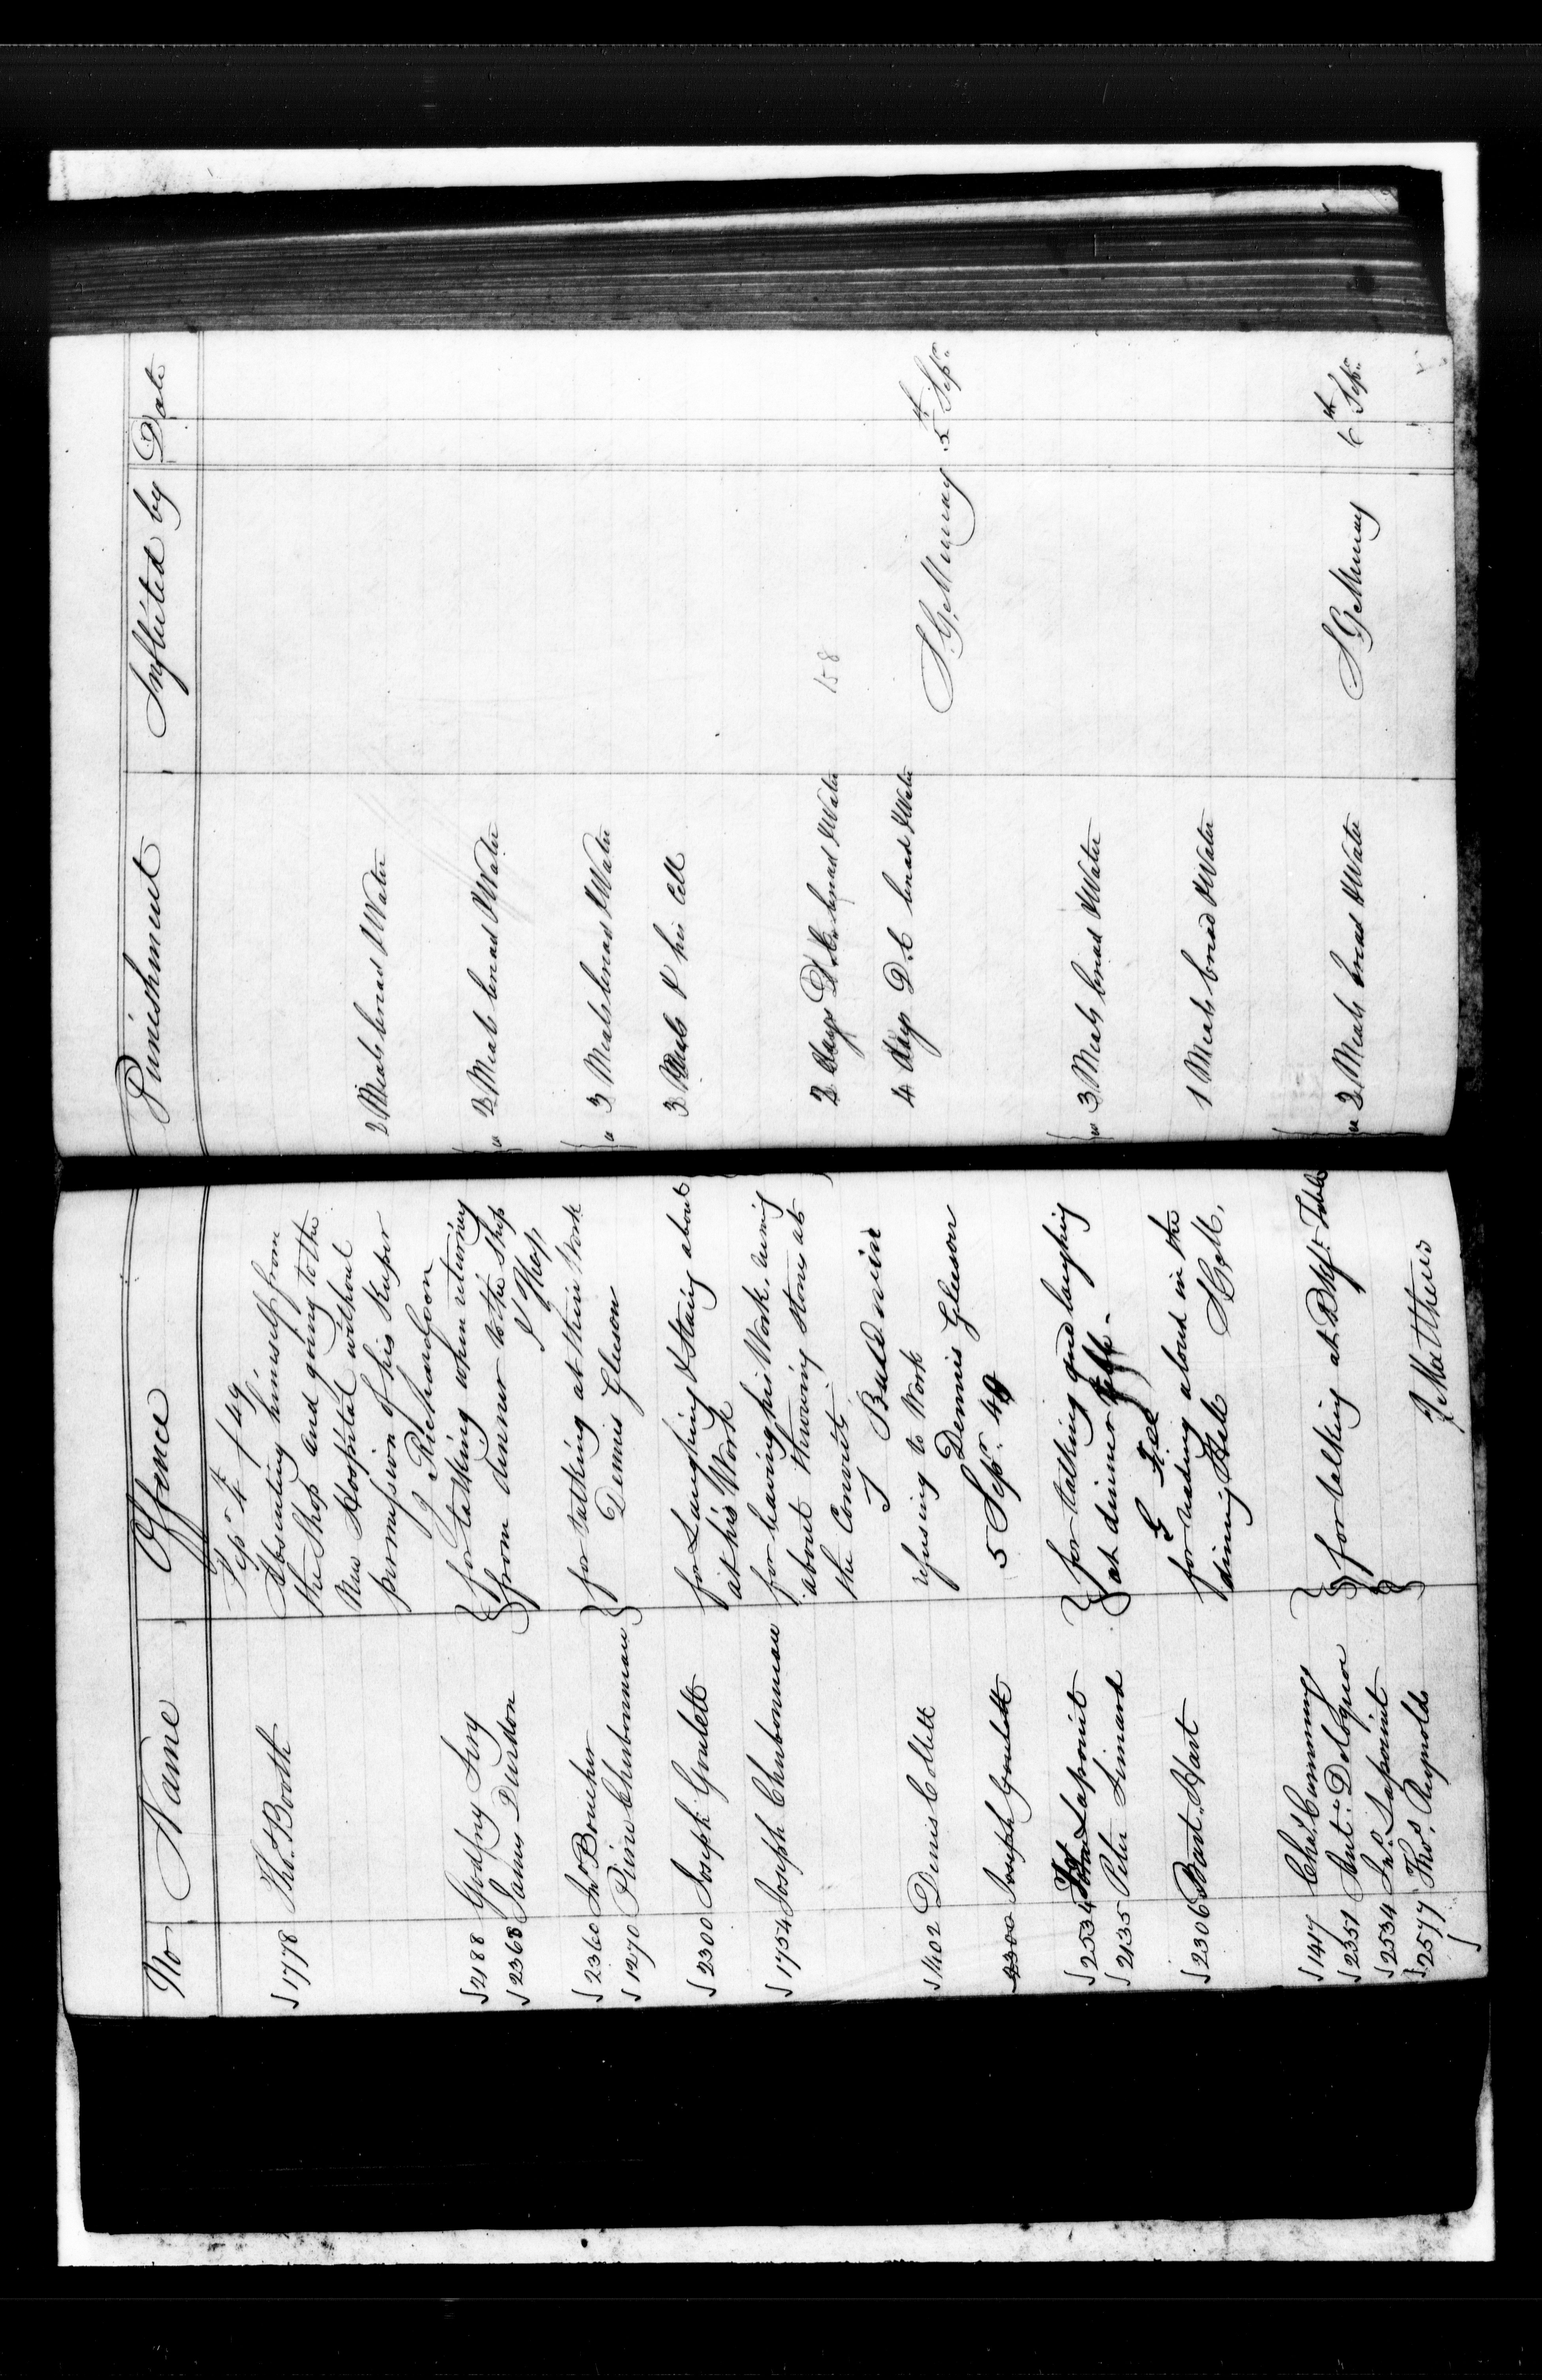 No Name Offence Punishment Inflicted by Date
Sepr 4th / 49
1778 Thos. Booth Absenting himself from
the Shop and going to the
New Hospital without 2 Meals bread & Water
permission of his Keeper
J Richardson
2188 Godfrey for talking when returning
2368 James Durdon from dinner to the Shop 3 Meals bread & Water
2360 Jno Boucher for talking at their Work 3 Meals bread & Water
1270 Pierre Charbonneau Dennis Gleeson
2300 Joseph Goulett for Laughing & Staring about 3 Meals & his Cell
at his Work
1754 Joseph Charbonneau for leaving his Work, runing
about throwing stones at 2 days D.C. bread & Water 158
the Convicts
J Baldwin
1402 Denis Collett refusing to Work 4 days D.C bread & Water
Dennis Gleeson S. G. Murray 5th Sepr.
2300 Joseph Goulett 5 Sepr. 49
2534 Lapoint for talking and laughing 3 Meals bread & Water
2135 Peter Simard at dinner
2306 Bart. Hart for reading aloud in the 1 Meals bread & Water
dining Hall
1417 Chas. Cummings
2351 Ant. for talking at Bkft. Table 2 Meals bread & Water S. G. Murray 6th Sepr.
2534 Jno. Lapoint
2577 Thos. Reynolds
J Matthews